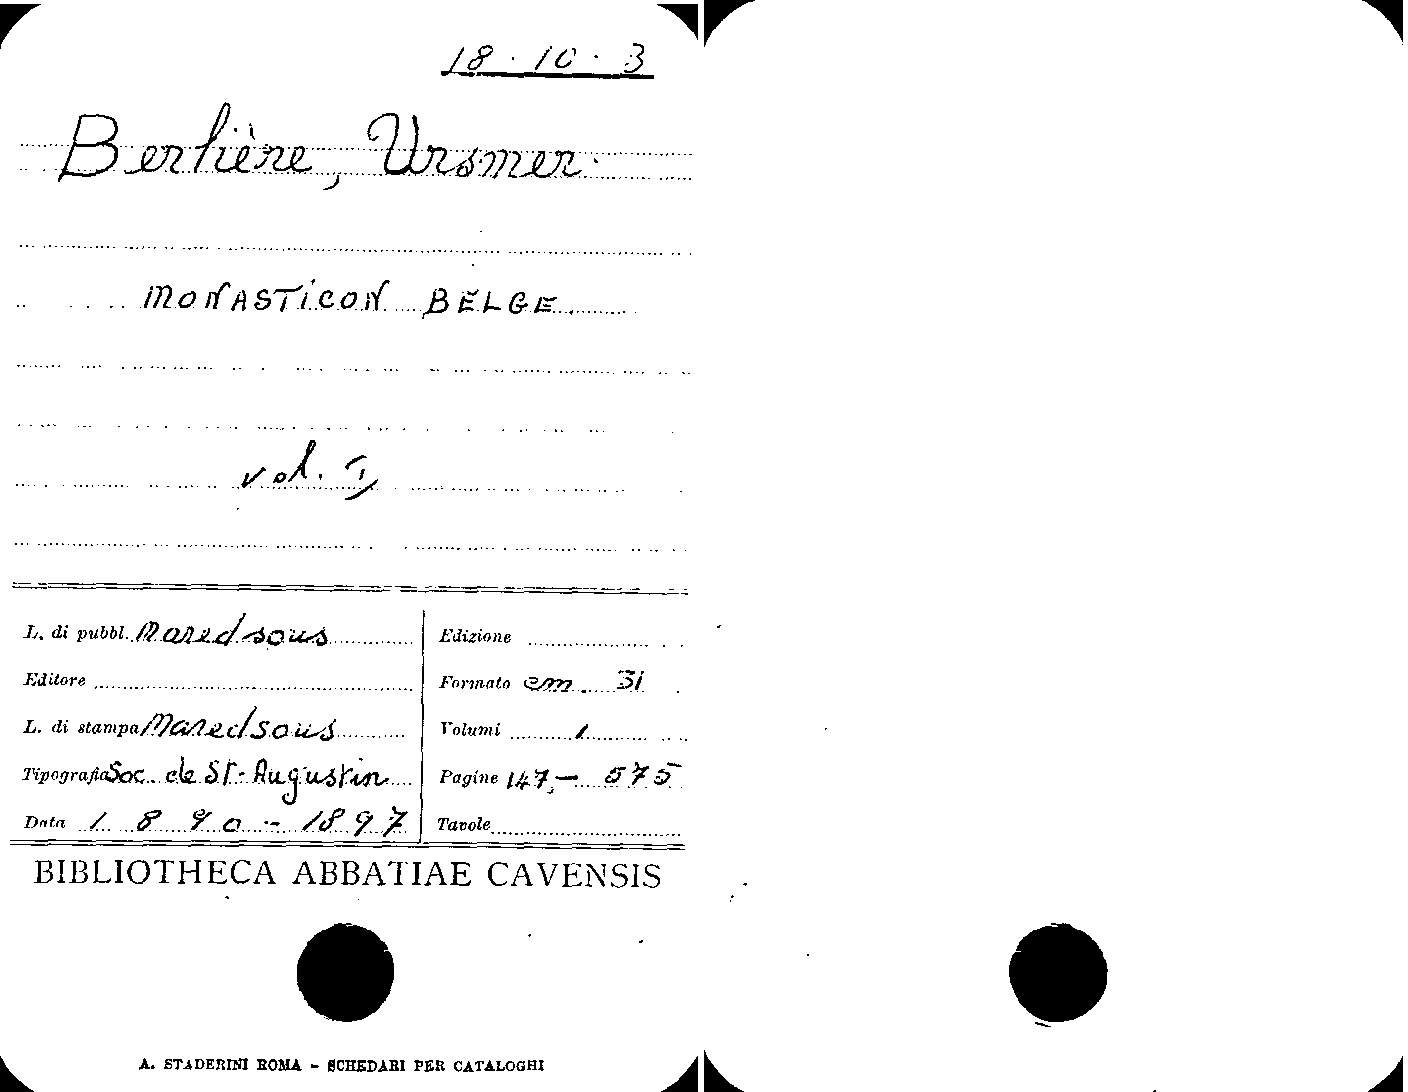 18 · 10 · 3
Berlière, Ursmer.
MONASTICON BELGE.
vol. I
L. di pubbl. Maredsous
Editore
L. di stampa Maredsous
Tipografia Soc. de St. Augustin
Data 1890 - 1897
Edizione
Formato cm. 31
Volumi 1
Pagine 147, - 575
Tavole
BIBLIOTHECA ABBATIAE CAVENSIS
A. STADERINI ROMA - SCHEDARI PER CATALOGHI